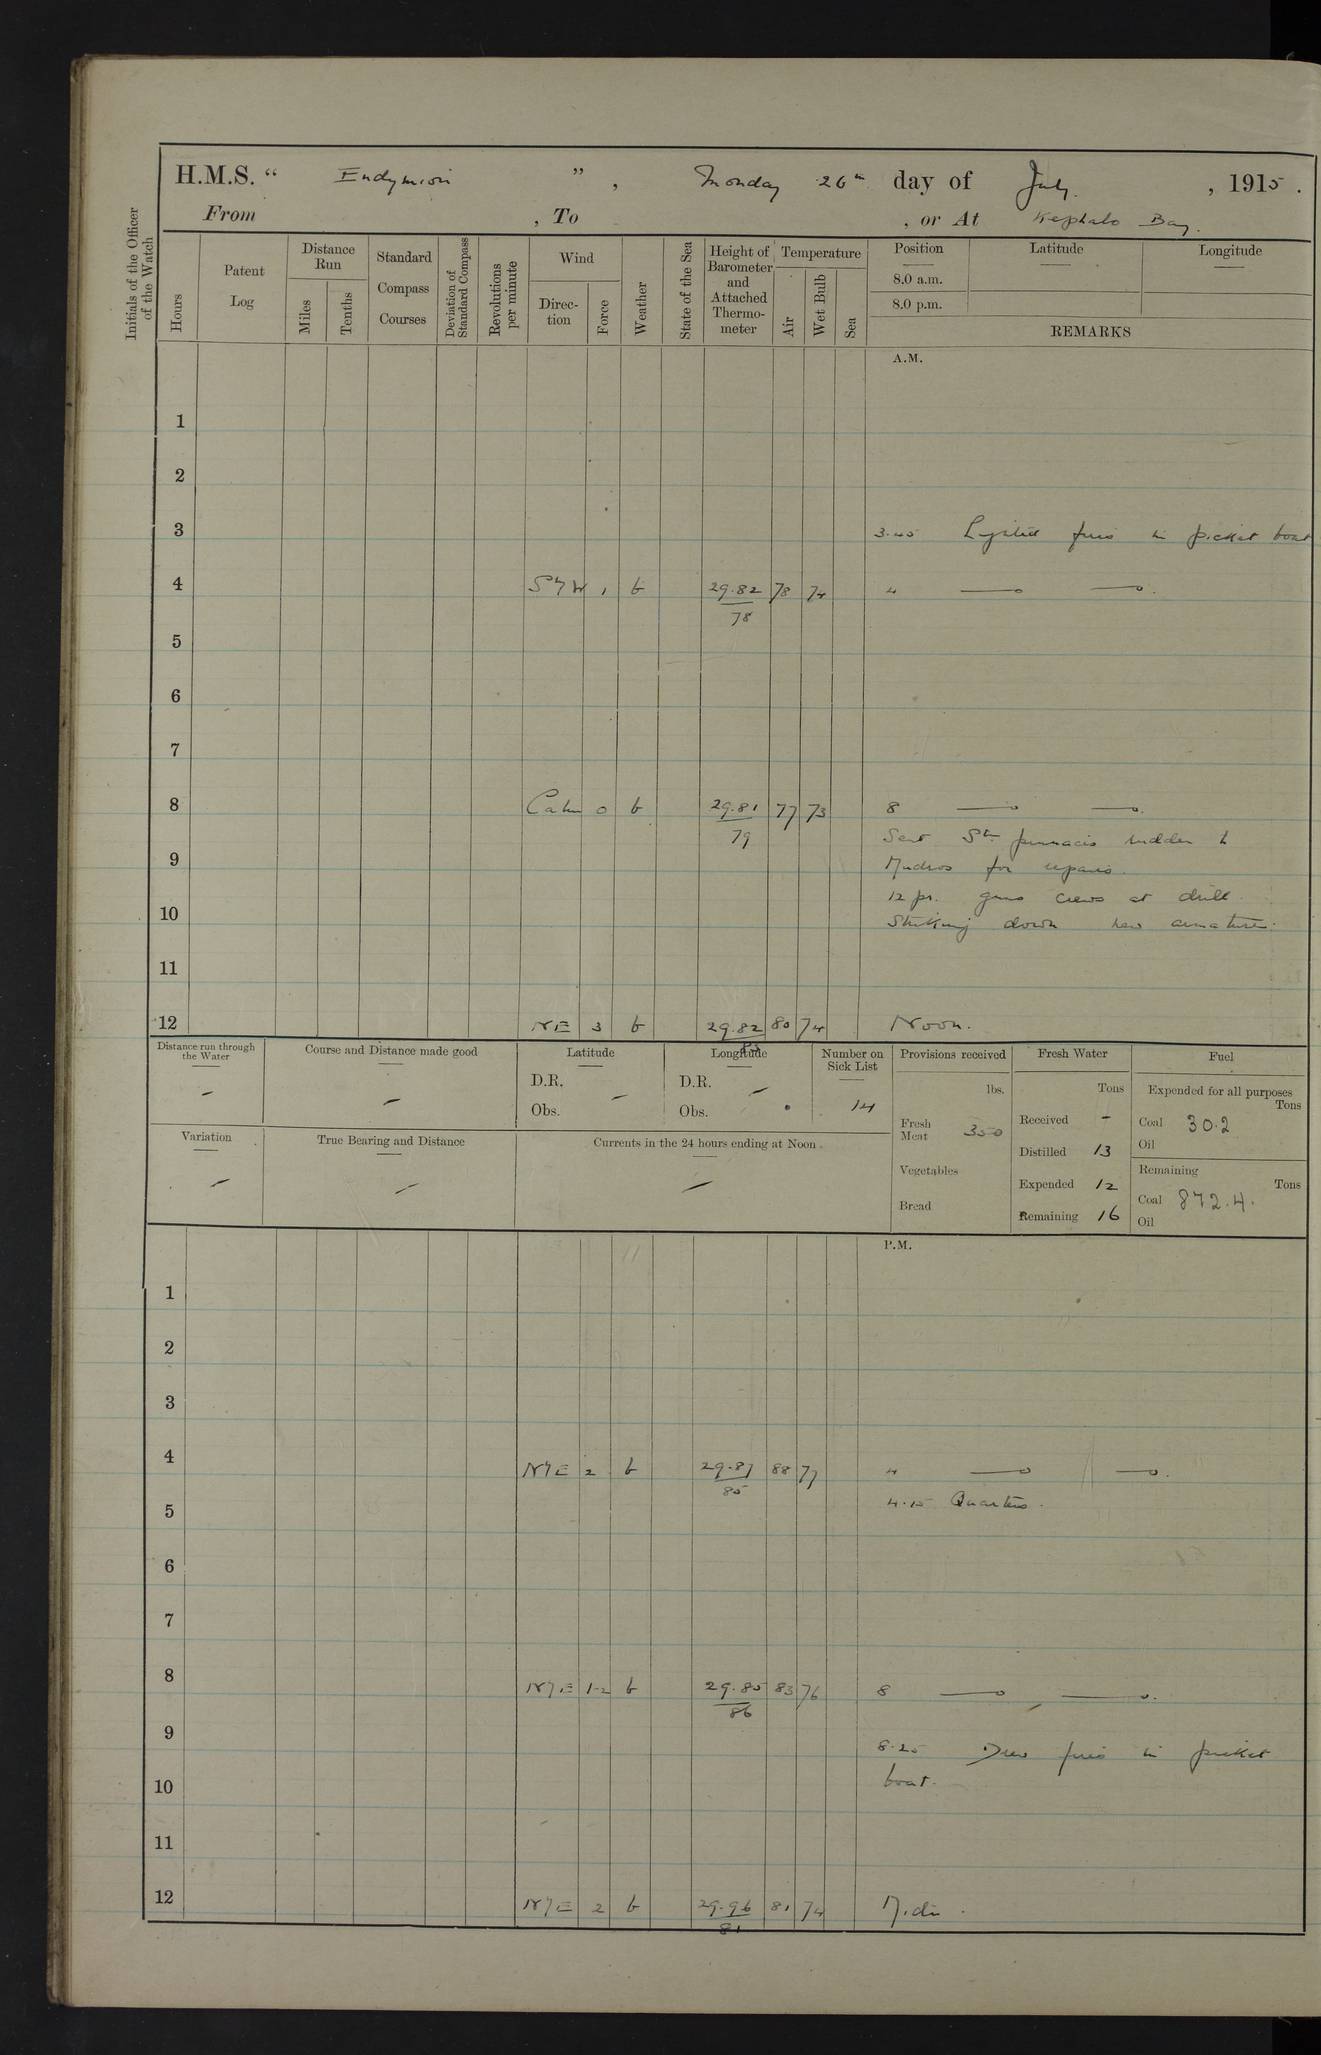 H.M.S. “ Endymion ” , Monday 26th day of July , 1915 .
From , To , or At Kephalo Bay.
Initials of the Officer of the Watch
Hours
Patent Log
Distance Run
Miles
Tenths
Standard Compass Courses
Deviation of Standard Compass
Revolutions per minute
Wind
Direc-tion
Force
Weather
State of the Sea
Height of Barometer and Attached Thermo-meter
Temperature
Air
Wet Bulb
Sea
Position
8.0 a.m.
8.0 p.m.
Latitude
Longitude
REMARKS
A.M.
1
2
3 3.45 Lighted fires in picket boat
4 1 b 29.82 78 74 4
78
5
6
7
8 Calm 0 b 29.81 77 73 8
79
Sent Stm pinnaces rudder to
9 Mudros for repairs.
12 pr. guns crews at drill.
10 Striking down new armature.
11
12 NE 3 b 29.82 80 74 Noon.
83
Distance run through the Water
-
Course and Distance made good
-
Latitude
D.R.
Obs.
-
Longitude
D.R. -
Obs.
Number on Sick List
14
Provisions received
lbs.
Fresh Meat 350
Vegetables
Bread
Fresh Water
Tons
Received -
Distilled 13
Expended 12
Remaining 16
Fuel
Expended for all purposes
Tons
Coal 30.2
Oil
Remaining
Tons
Coal 872.4.
Oil
Variation
-
True Bearing and Distance
-
Currents in the 24 hours ending at Noon
-
P.M.
1
2
3
4 N/E 2 b 29.87 88 77 4
85
4.15 Quarters.
5
6
7
8 N/E 1-2 b 29.85 83 76 8
86
9 8.25 Drew fires in picket
10 boat.
11
12 N/E 2 b 29.96 81 74 Midn.
81